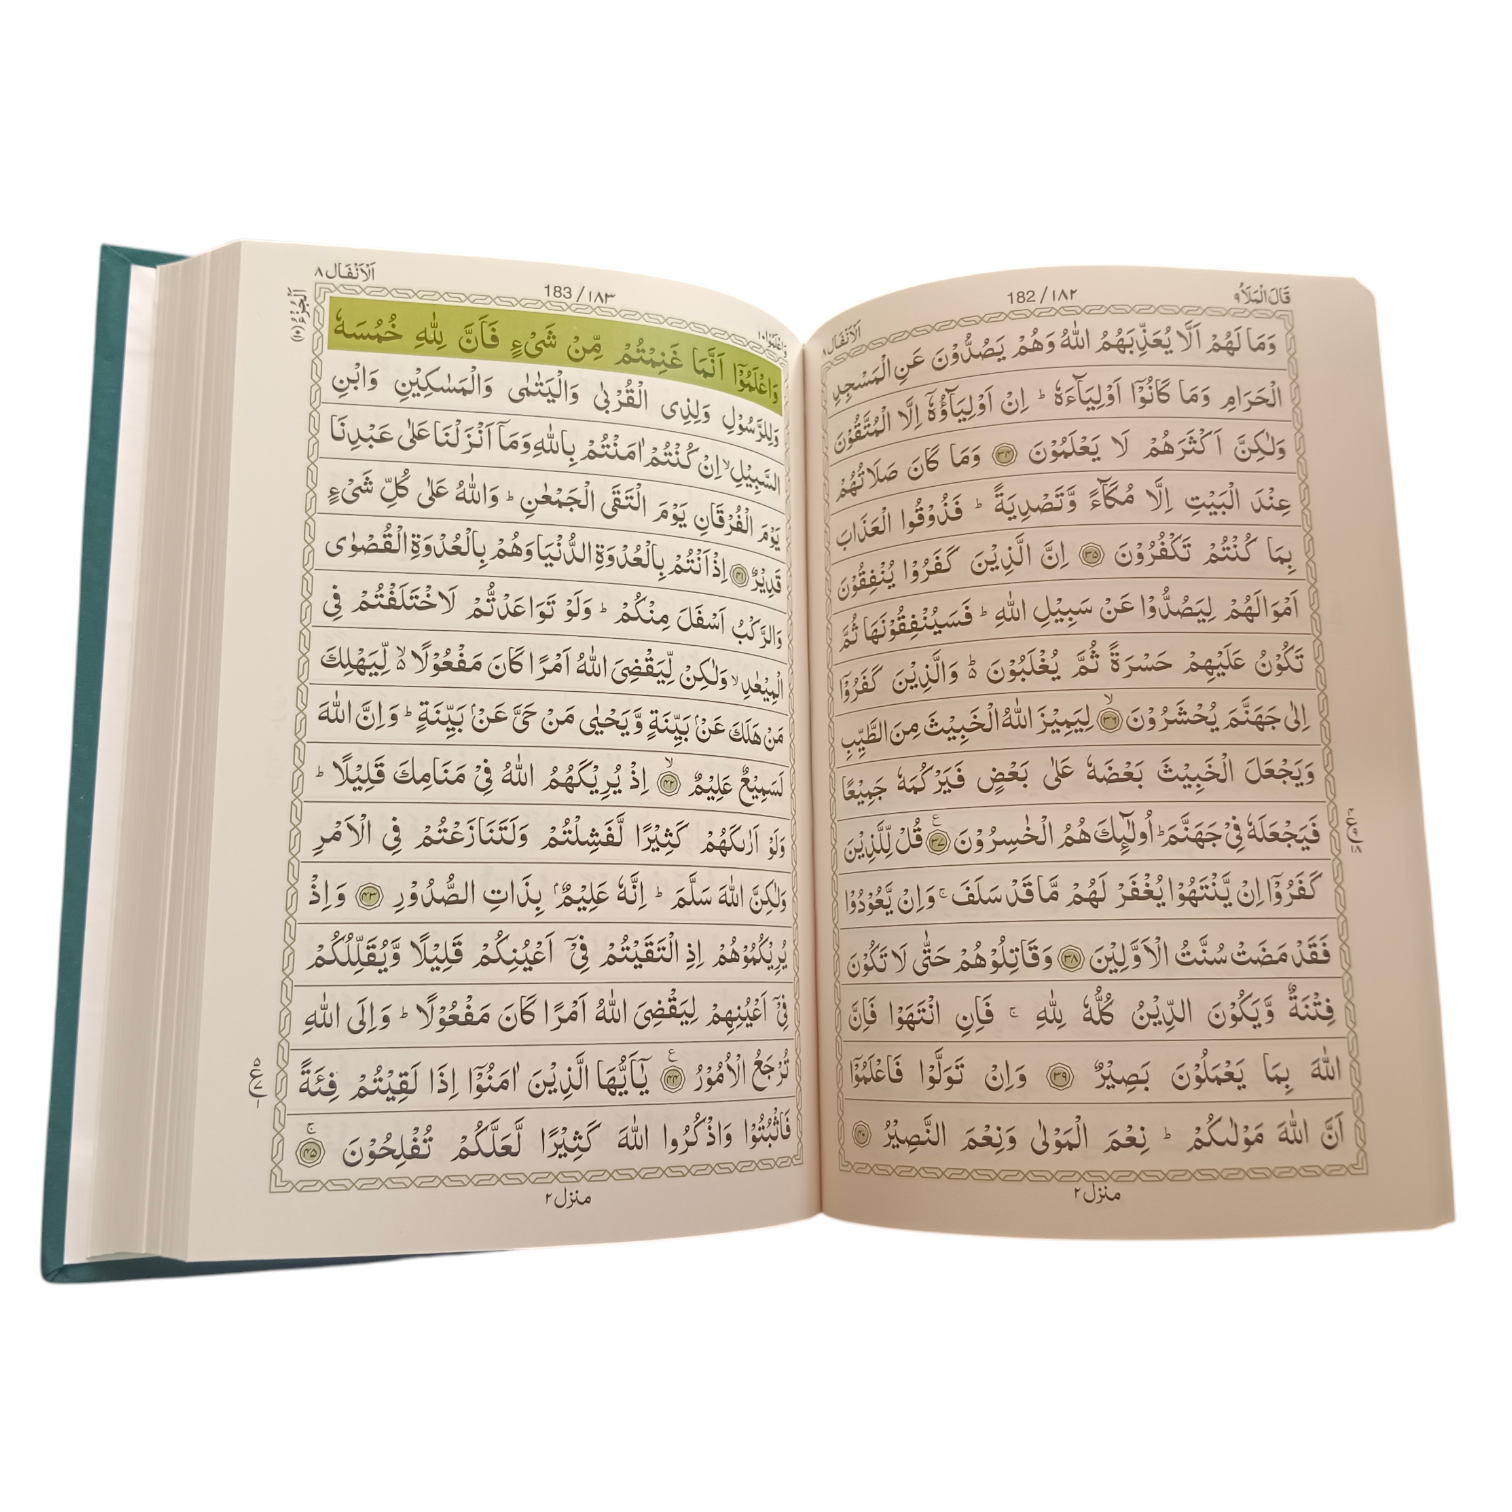 قَالَ الْمَلَاُ ٩
182 / ١٨٢
اَلْاَنْفَال ٨
وَمَا لَهُمْ اَلَّا يُعَذِّبَهُمُ اللّٰهُ وَهُمْ يَصُدُّوْنَ عَنِ الْمَسْجِدِ
الْحَرَامِ وَمَا كَانُوْٓا اَوْلِيَآءَهٗ ؕ اِنْ اَوْلِيَآؤُهٗٓ اِلَّا الْمُتَّقُوْنَ
وَلٰكِنَّ اَكْثَرَهُمْ لَا يَعْلَمُوْنَ ﴿۳۴﴾ وَمَا كَانَ صَلَاتُهُمْ
عِنْدَ الْبَيْتِ اِلَّا مُكَآءً وَّتَصْدِيَةً ؕ فَذُوْقُوا الْعَذَابَ
بِمَا كُنْتُمْ تَكْفُرُوْنَ ﴿۳۵﴾ اِنَّ الَّذِيْنَ كَفَرُوْا يُنْفِقُوْنَ
اَمْوَالَهُمْ لِيَصُدُّوْا عَنْ سَبِيْلِ اللّٰهِ ؕ فَسَيُنْفِقُوْنَهَا ثُمَّ
تَكُوْنُ عَلَيْهِمْ حَسْرَةً ثُمَّ يُغْلَبُوْنَ ؕ۬ وَالَّذِيْنَ كَفَرُوْٓا
اِلٰى جَهَنَّمَ يُحْشَرُوْنَ ﴿۳۶﴾ۙ لِيَمِيْزَ اللّٰهُ الْخَبِيْثَ مِنَ الطَّيِّبِ
وَيَجْعَلَ الْخَبِيْثَ بَعْضَهٗ عَلٰى بَعْضٍ فَيَرْكُمَهٗ جَمِيْعًا
فَيَجْعَلَهٗ فِيْ جَهَنَّمَ ؕ اُولٰٓئِكَ هُمُ الْخٰسِرُوْنَ ﴿۳۷﴾ قُلْ لِّلَّذِيْنَ
كَفَرُوْٓا اِنْ يَّنْتَهُوْا يُغْفَرْ لَهُمْ مَّا قَدْ سَلَفَ ۚ وَاِنْ يَّعُوْدُوْا
فَقَدْ مَضَتْ سُنَّتُ الْاَوَّلِيْنَ ﴿۳۸﴾ وَقَاتِلُوْهُمْ حَتّٰى لَا تَكُوْنَ
فِتْنَةٌ وَّيَكُوْنَ الدِّيْنُ كُلُّهٗ لِلّٰهِ ۚ فَاِنِ انْتَهَوْا فَاِنَّ
اللّٰهَ بِمَا يَعْمَلُوْنَ بَصِيْرٌ ﴿۳۹﴾ وَاِنْ تَوَلَّوْا فَاعْلَمُوْٓا
اَنَّ اللّٰهَ مَوْلٰىكُمْ ؕ نِعْمَ الْمَوْلٰى وَنِعْمَ النَّصِيْرُ ﴿۴۰﴾
منزل ٢
وَاعْلَمُوْٓا ١٠
183 / ١٨٣
اَلْاَنْفَال ٨
اَلْجُزْءُ (١٠)
وَاعْلَمُوْٓا اَنَّمَا غَنِمْتُمْ مِّنْ شَيْءٍ فَاَنَّ لِلّٰهِ خُمُسَهٗ
وَلِلرَّسُوْلِ وَلِذِى الْقُرْبٰى وَالْيَتٰمٰى وَالْمَسٰكِيْنِ وَابْنِ
السَّبِيْلِ ۙ اِنْ كُنْتُمْ اٰمَنْتُمْ بِاللّٰهِ وَمَآ اَنْزَلْنَا عَلٰى عَبْدِنَا
يَوْمَ الْفُرْقَانِ يَوْمَ الْتَقَى الْجَمْعٰنِ ؕ وَاللّٰهُ عَلٰى كُلِّ شَيْءٍ
قَدِيْرٌ ﴿۴۱﴾ اِذْ اَنْتُمْ بِالْعُدْوَةِ الدُّنْيَا وَهُمْ بِالْعُدْوَةِ الْقُصْوٰى
وَالرَّكْبُ اَسْفَلَ مِنْكُمْ ؕ وَلَوْ تَوَاعَدْتُّمْ لَاخْتَلَفْتُمْ فِى
الْمِيْعٰدِ ۙ وَلٰكِنْ لِّيَقْضِىَ اللّٰهُ اَمْرًا كَانَ مَفْعُوْلًا ۙ۬ لِّيَهْلِكَ
مَنْ هَلَكَ عَنْۢ بَيِّنَةٍ وَّيَحْيٰى مَنْ حَىَّ عَنْۢ بَيِّنَةٍ ؕ وَاِنَّ اللّٰهَ
لَسَمِيْعٌ عَلِيْمٌ ﴿۴۲﴾ۙ اِذْ يُرِيْكَهُمُ اللّٰهُ فِيْ مَنَامِكَ قَلِيْلًا ؕ
وَلَوْ اَرٰىكَهُمْ كَثِيْرًا لَّفَشِلْتُمْ وَلَتَنَازَعْتُمْ فِى الْاَمْرِ
وَلٰكِنَّ اللّٰهَ سَلَّمَ ؕ اِنَّهٗ عَلِيْمٌۢ بِذَاتِ الصُّدُوْرِ ﴿۴۳﴾ وَاِذْ
يُرِيْكُمُوْهُمْ اِذِ الْتَقَيْتُمْ فِيْٓ اَعْيُنِكُمْ قَلِيْلًا وَّيُقَلِّلُكُمْ
فِيْٓ اَعْيُنِهِمْ لِيَقْضِىَ اللّٰهُ اَمْرًا كَانَ مَفْعُوْلًا ؕ وَاِلَى اللّٰهِ
تُرْجَعُ الْاُمُوْرُ ﴿۴۴﴾ يٰٓاَيُّهَا الَّذِيْنَ اٰمَنُوْٓا اِذَا لَقِيْتُمْ فِئَةً
فَاثْبُتُوْا وَاذْكُرُوا اللّٰهَ كَثِيْرًا لَّعَلَّكُمْ تُفْلِحُوْنَ ﴿۴۵﴾ۚ
منزل ٢